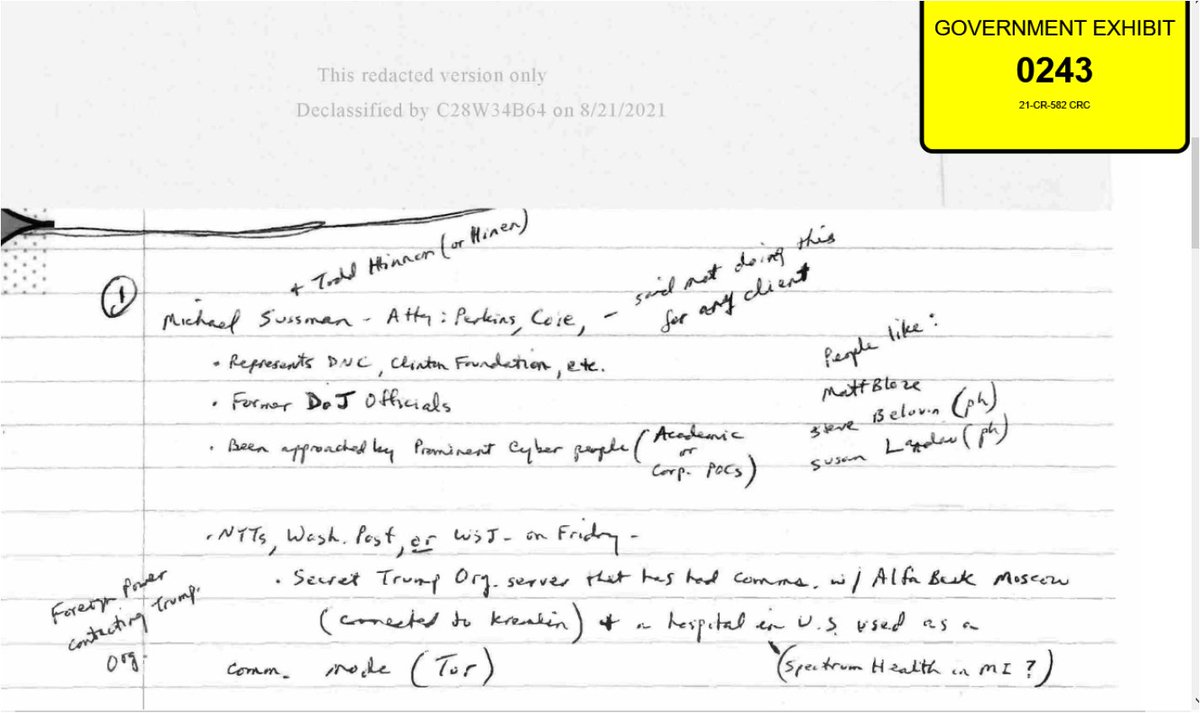 GOVERNMENT EXHIBIT
0243
21-CR-582 CRC
This redacted version only
Declassified by C28W34B64 on 8/21/2021
+ Todd Hinnen (or Hinen)
① Michael Sussman - Atty: Perkins, Coie, - said not doing this
for any client
• Represents DNC, Clinton Foundation, etc.
• Former DoJ Officials
• Been approached by Prominent Cyber people (Academic
or
Corp. POCs)
People like:
Matt Blaze
Steve Belovin (ph)
Susan Landau (ph)
• NYTs, Wash. Post, or WSJ - on Friday -
• Secret Trump Org. server that has had comms. w/ Alfa Bank Moscow
(connected to Kremlin) + a hospital in U.S. used as a
comm. node (Tor)
(Spectrum Health in MI?)
Foreign Power
contacting Trump.
Org.